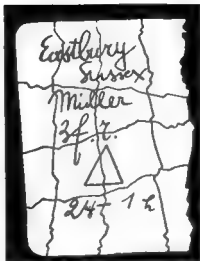 Eastbury
Sussex
Müller
3f. r.
24 - 1 h